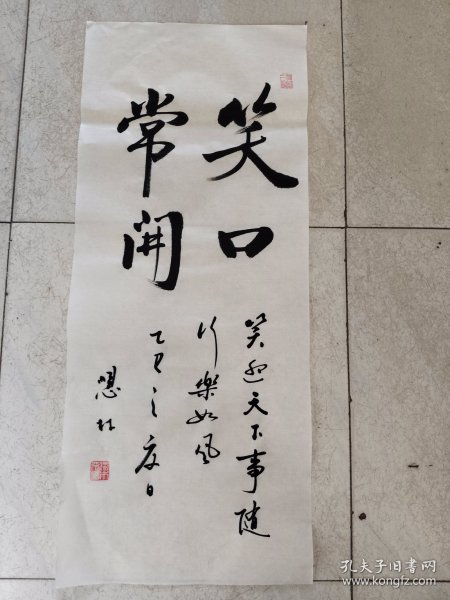 笑口
常開
笑迎天下事随
行樂如風
乙巳之夜日
孔夫子旧书网
www.kongfz.com